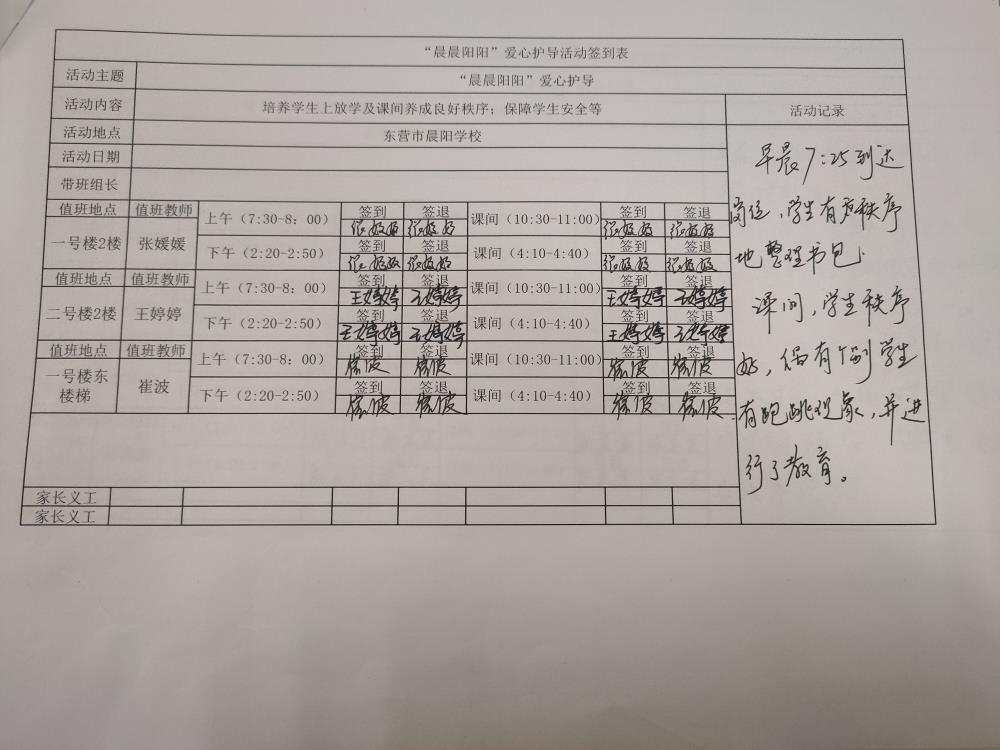 “晨晨阳阳”爱心护导活动签到表
活动主题 “晨晨阳阳”爱心护导
活动内容 培养学生上放学及课间养成良好秩序；保障学生安全等 活动记录
活动地点 东营市晨阳学校
活动日期
带班组长
值班地点 值班教师 上午（7:30-8：00） 签到 签退 课间（10:30-11:00） 签到 签退
张媛媛 张媛媛 张媛媛 张媛媛
一号楼2楼 张媛媛 下午（2:20-2:50） 签到 签退 课间（4:10-4:40） 签到 签退
张媛媛 张媛媛 张媛媛 张媛媛
值班地点 值班教师 上午（7:30-8：00） 签到 签退 课间（10:30-11:00） 签到 签退
王婷婷 王婷婷 王婷婷 王婷婷
二号楼2楼 王婷婷 下午（2:20-2:50） 签到 签退 课间（4:10-4:40） 签到 签退
王婷婷 王婷婷 王婷婷 王婷婷
值班地点 值班教师 上午（7:30-8：00） 签到 签退 课间（10:30-11:00） 签到 签退
一号楼东
楼梯 崔波 下午（2:20-2:50） 签到 签退 课间（4:10-4:40） 签到 签退
家长义工
家长义工
早晨7:25到达
岗位，学生有序秩序
地整理书包.
课间，学生秩序
好，但有个别学生
有跑跳现象，并进
行了教育。